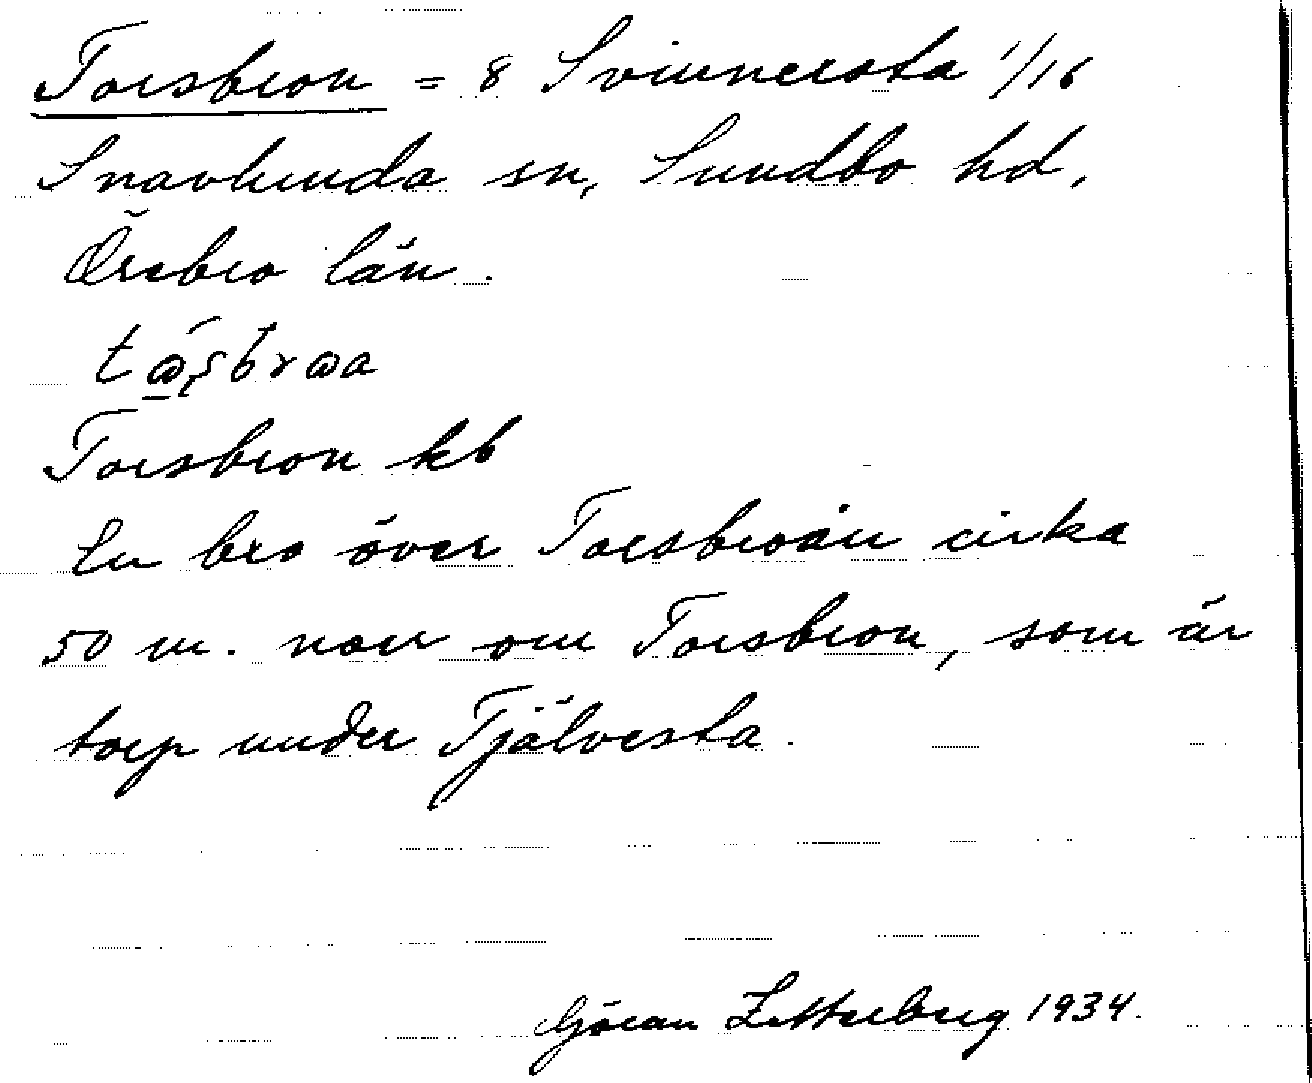 Torsbron = 8 Svinnersta 1/16
Snavlunda sn, Sundbo hd,
Örebro län.
Torsbron kb
En bro över Torsbroån cirka
50 m. norr om Torsbron, som är
torp under Tjälvesta.
Göran Zetterberg 1934.